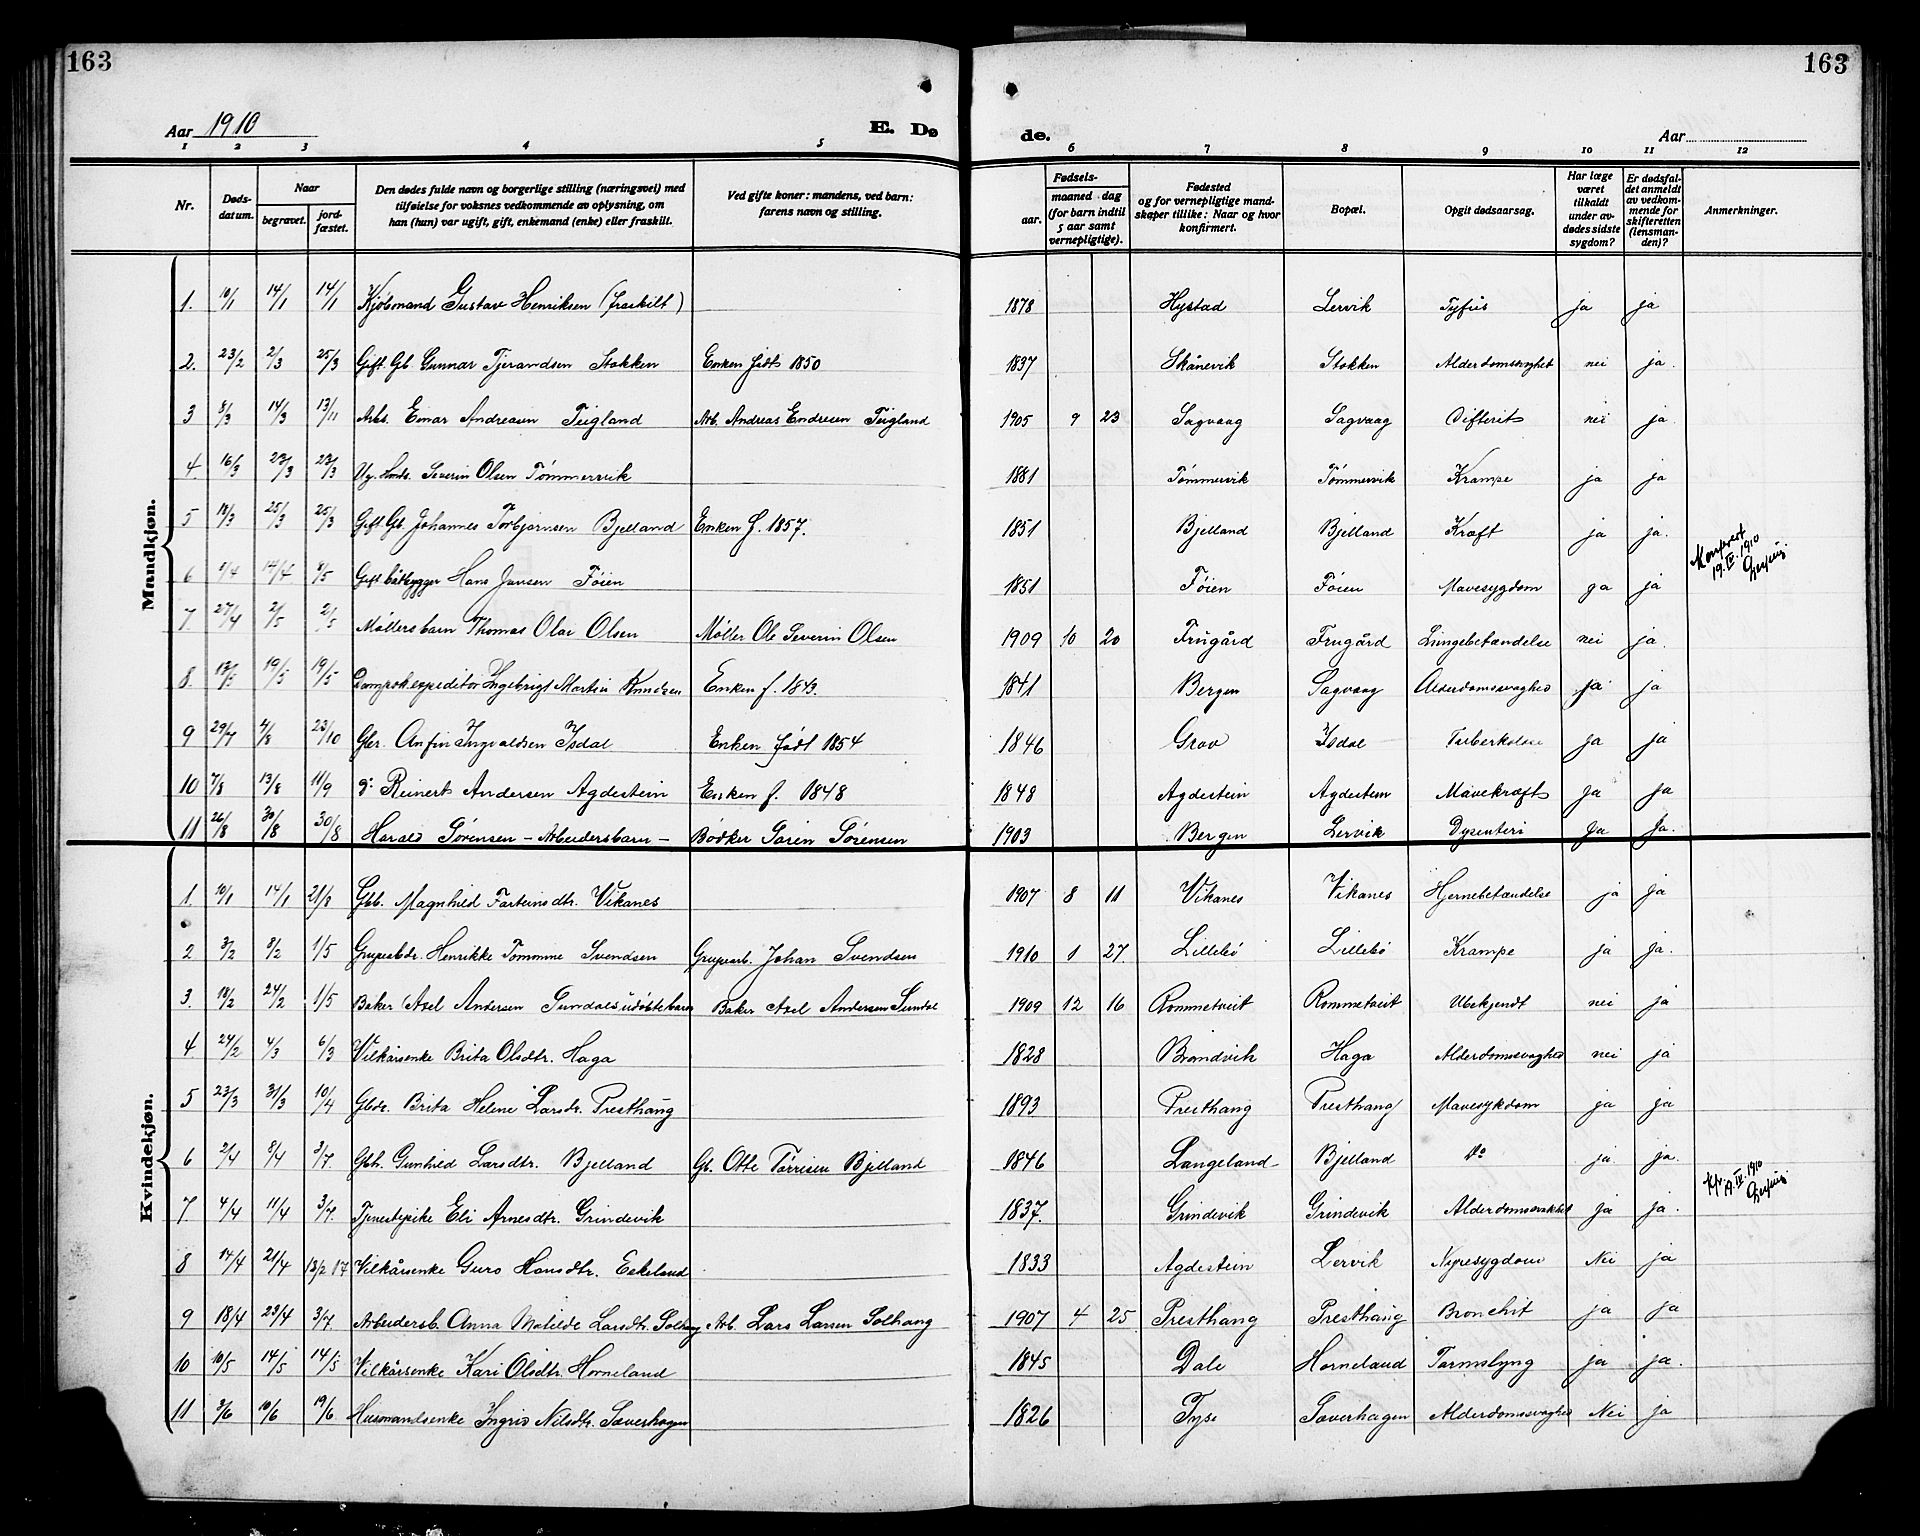 163
163
Aar 1910
E. Dø
de.
Aar
1 2 3 4 5 6 7 8 9 10 11 12
Nr. Døds-datum. Naar begravet. jord-fæstet. Den dødes fulde navn og borgerlige stilling (næringsvei) med tilføielse for voksnes vedkommende av oplysning, om han (hun) var ugift, gift, enkemand (enke) eller fraskill. Ved gifte koner: mandens, ved barn: farens navn og stilling. Fødsels- aar. maaned dag (for barn indtil 5 aar samt vernepligtige). Fødested og for vernepligtige mand-skaper tillike: Naar og hvor konfirmert. Bopæl. Opgit dødsaarsag. Har læge været tilkaldt under av-dødes sidste sygdom? Er dødsfal-det anmeldt av vedkom-mende for skifteretten (lensman-den)? Anmerkninger.
Mandkjøn.
1. 10/1 14/1 14/1 Kjøbmand Gustav Henriksen (fraskilt) 1878 Hystad Lervik Tyfus ja ja
2. 23/2 2/3 25/3 Gift Gb. Gunnar Tjerandsen Stokken Enken født 1850 1837 Skånevik Stokken Alderdomssvaghet nei ja.
3 8/3 14/3 13/11 Arbs. Einar Andreasen Teigland Arb. Andreas Endresen Teigland 1905 9 23 Sagvaag Sagvaag Difterit nei ja.
4 16/3 23/3 23/3 Ug. Severin Olsen Tømmervik 1881 Tømmervik Tømmervik Krampe ja ja
5 18/3 25/3 25/3 Gift Gb. Johannes Torbjørnsen Bjelland Enken f. 1857. 1851 Bjelland Bjelland Kræft ja ja.
6 1/4 14/4 8/5 Gift båtbygger Hans Jansen Føien 1851 Føien Føien Mavesygdom ja ja
19.IV.1910
7 27/4 2/5 2/5 Møllersbarn Thomas Olai Olsen Møller Ole Severin Olsen 1909 10 20 Frugård Frugård Lungebetændelse nei ja.
8 13/5 19/5 19/5 Dampsk.expeditør Ingebrigt Martin Knudsen Enken f. 1843. 1841 Bergen Sagvaag Alderdomssvaghed ja ja
9 29/7 4/8 23/10 Gbr. Anfin Ingvaldsen Isdal Enken født 1854 1846 Grov Isdal Tuberkolose ja ja
10 7/8 13/8 11/9 Reinert Andersen Agdestein Enken f. 1848 1848 Agdestein Agdestein Mavekræft ja ja
11 26/8 30/8 30/8 Harald Sørensen – Arbeidersbarn – Bødker Søren Sørensen 1903 Bergen Lervik Dysenteri Ja Ja.
Kvindekjøn.
1. 10/1 14/1 21/3 Gbb. Magnhild Farteinsdtr. Vikanes 1907 8 11 Vikanes Vikanes Hjernebetændelse ja ja
2 3/2 8/2 1/5 Grubearbdr. Henrikke Tomonine Svendsen Grubearb. Johan Svendsen 1910 1 27. Lillebø Lillebø Krampe ja ja.
3. 18/2 24/2 1/5 Baker Axel Andersen Sundals udøbte barn Baker Axel Andersen Sundal 1909 12 16 Rommetveit Rommetveit Ubekjendt nei ja
4 24/2 4/3 6/3 Vilkårsenke Brita Olsdtr. Haga 1828 Brandvik Haga Alderdomssvaghed nei ja
5 23/3 31/3 10/4 Gbdr. Brita Helene Larsdr. Presthaug 1893 Presthaug Presthaug Mavesykdom ja ja
6 2/4 8/4 3/7. Gbh. Gunhild Larsdtr. Bjelland Gb. Otte Tørrisen Bjelland 1846 Langeland Bjelland Do ja ja.
19.IV.1910
7. 4/4 11/4 3/7. Tjenestepike Eli Arnesdtr. Grindevik 1837. Grindevik Grindevik Alderdomssvakhet ja ja.
8 14/4 21/4 13/2 17 Vilkårsenke Guro Hansdtr. Eskeland 1833 Agdestein Lervik Nyresygdom Nei ja
9 18/4 23/4 3/7 Arbeidersb. Anna Matilde Larsdtr. Solhaug Arb. Lars Larsen Solhaug 1907 4 25 Presthaug Presthaug Bronchit ja ja
10 10/5 14/5 14/5 Vilkårsenke Kari Olsdtr. Horneland 1845 Dale Horneland Tarmslyng ja ja.
11 3/6 10/6 19/6 Husmandsenke Ingrid Nilsdtr. Sæverhagen 1826 Tyse Sæverhagen Alderdomssvaghed Nei ja